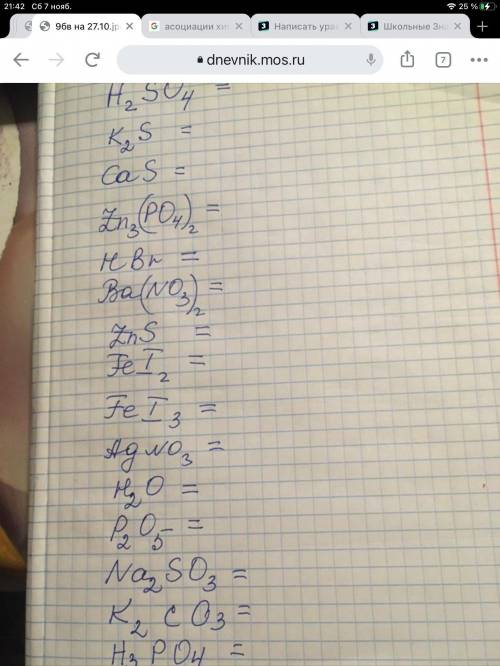 21:42 Сб 7 нояб.
25 %
9бв на 27.10.jp
асоциации хи
Написать ура
Школьные Зна
dnevnik.mos.ru
7
H₂SO₄ =
K₂S =
CaS =
Zn₃(PO₄)₂ =
HBr =
Ba(NO₃)₂ =
ZnS =
FeI₂ =
FeI₃ =
AgNO₃ =
H₂O =
P₂O₅ =
Na₂SO₃ =
K₂CO₃ =
H₃PO₄ =